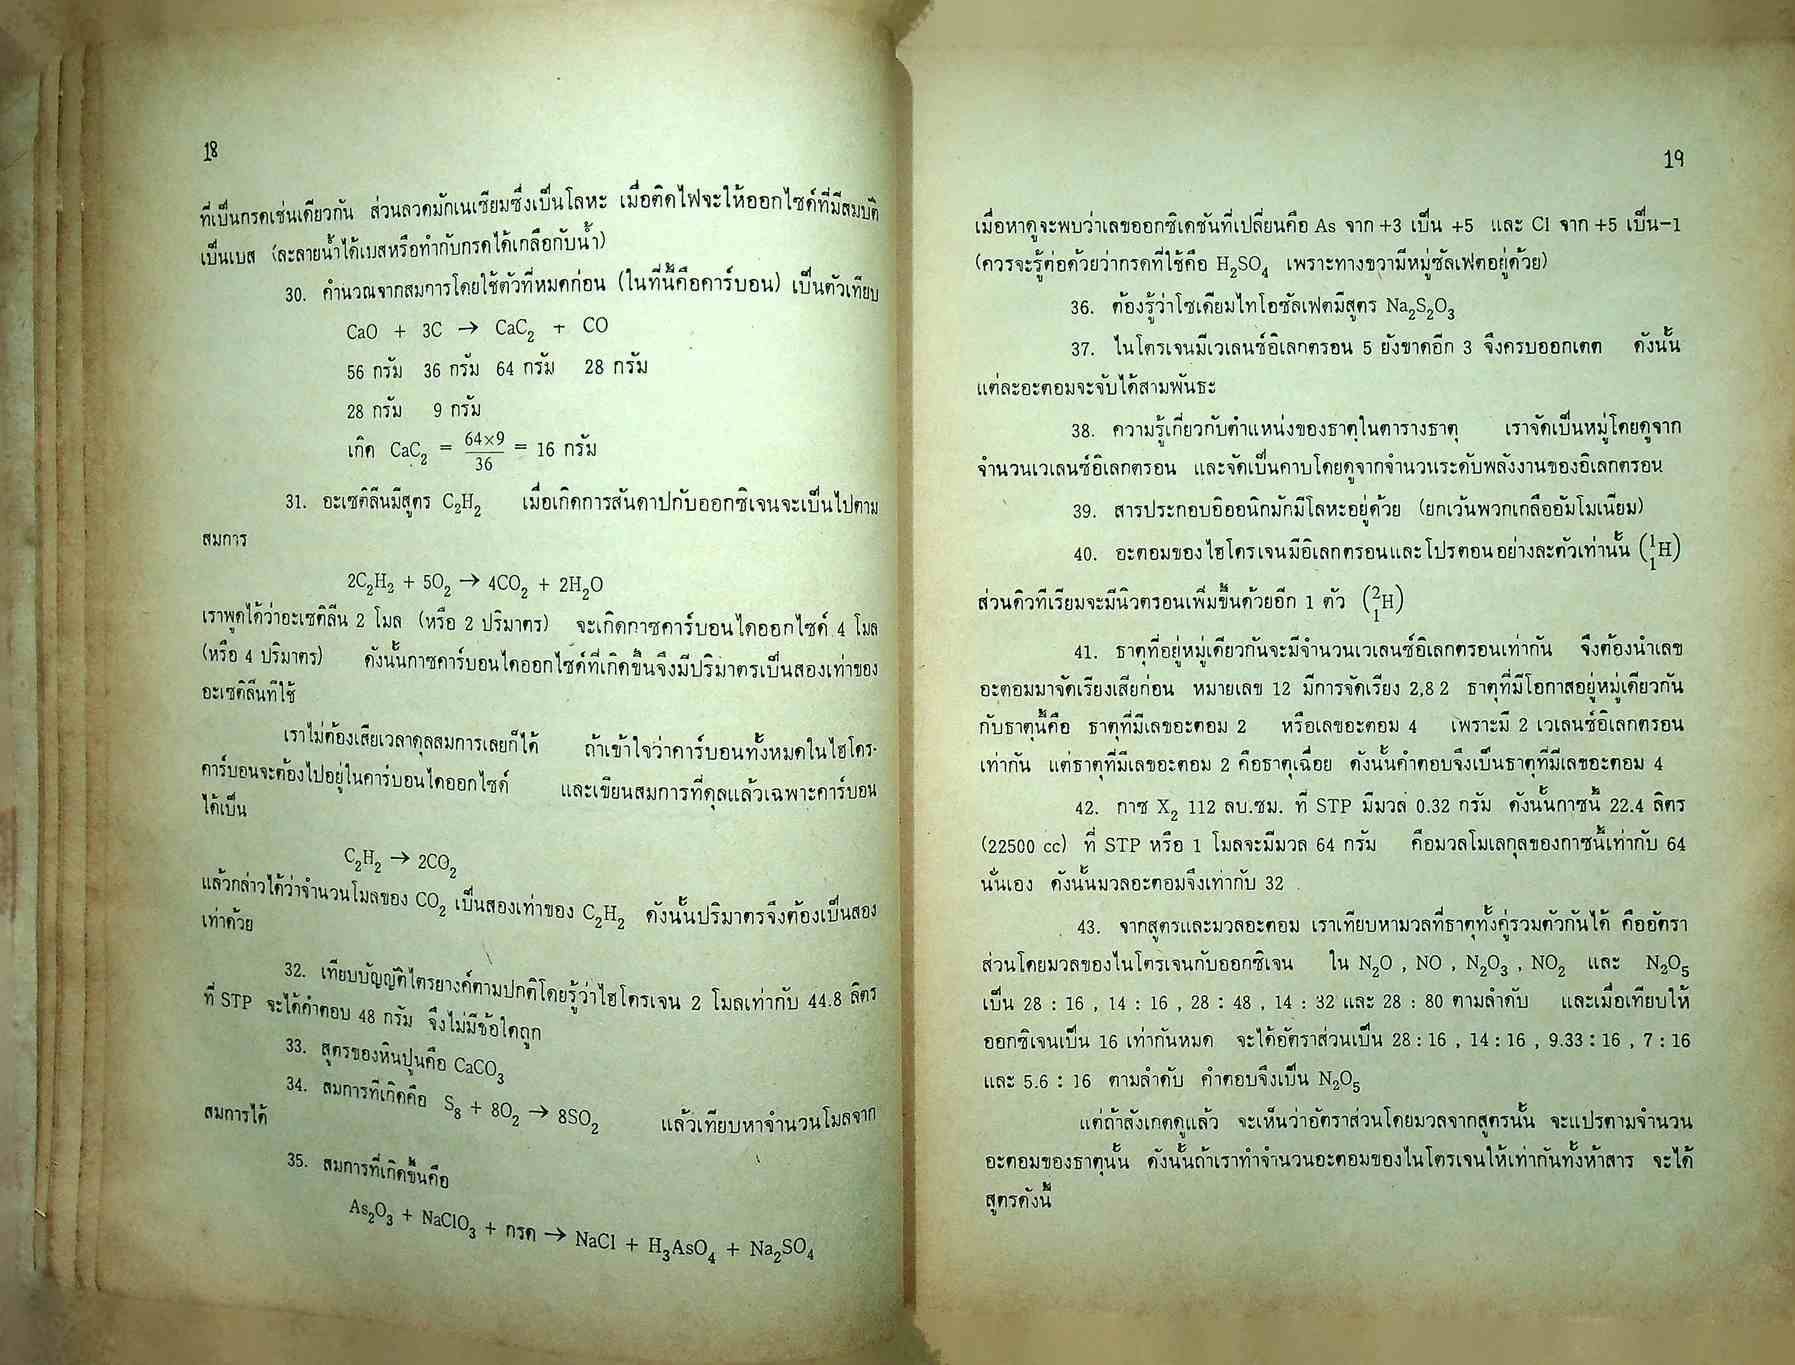 18
ที่เป็นกรดเช่นเดียวกัน ส่วนลวดมักเนเซียมซึ่งเป็นโลหะ เมื่อติดไฟจะให้ออกไซด์ที่มีสมบัติ
เป็นเบส (ละลายน้ำได้เบสหรือทำกับกรดได้เกลือกับน้ำ)
30. คำนวณจากสมการโดยใช้ตัวที่หมดก่อน (ในที่นี้คือคาร์บอน) เป็นตัวเทียบ
CaO + 3C → CaC₂ + CO
56 กรัม 36 กรัม 64 กรัม 28 กรัม
28 กรัม 9 กรัม
เกิด CaC₂ = 64×9/36 = 16 กรัม
31. อะเซติลีนมีสูตร C₂H₂ เมื่อเกิดการสันดาปกับออกซิเจนจะเป็นไปตาม
สมการ
2C₂H₂ + 5O₂ → 4CO₂ + 2H₂O
เราพูดได้ว่าอะเซติลีน 2 โมล (หรือ 2 ปริมาตร) จะเกิดกาซคาร์บอนไดออกไซด์ 4 โมล
(หรือ 4 ปริมาตร) ดังนั้นกาซคาร์บอนไดออกไซด์ที่เกิดขึ้นจึงมีปริมาตรเป็นสองเท่าของ
อะเซติลีนที่ใช้
เราไม่ต้องเสียเวลาดุลสมการเลยก็ได้ ถ้าเข้าใจว่าคาร์บอนทั้งหมดในไฮโดร-
คาร์บอนจะต้องไปอยู่ในคาร์บอนไดออกไซด์ และเขียนสมการที่ดุลแล้วเฉพาะคาร์บอน
ได้เป็น
C₂H₂ → 2CO₂
แล้วกล่าวได้ว่าจำนวนโมลของ CO₂ เป็นสองเท่าของ C₂H₂ ดังนั้นปริมาตรจึงต้องเป็นสอง
เท่าด้วย
32. เทียบบัญญัติไตรยางค์ตามปกติโดยรู้ว่าไฮโดรเจน 2 โมลเท่ากับ 44.8 ลิตร
ที่ STP จะได้คำตอบ 48 กรัม จึงไม่มีข้อใดถูก
33. สูตรของหินปูนคือ CaCO₃
34. สมการที่เกิดคือ S₈ + 8O₂ → 8SO₂ แล้วเทียบหาจำนวนโมลจาก
สมการได้
35. สมการที่เกิดขึ้นคือ
As₂O₃ + NaClO₃ + กรด → NaCl + H₃AsO₄ + Na₂SO₄
19
เมื่อหาดูจะพบว่าเลขออกซิเดชันที่เปลี่ยนคือ As จาก +3 เป็น +5 และ Cl จาก +5 เป็น−1
(ควรจะรู้ต่อด้วยว่ากรดที่ใช้คือ H₂SO₄ เพราะทางขวามีหมู่ซัลเฟตอยู่ด้วย)
36. ต้องรู้ว่าโซเดียมไทโอซัลเฟตมีสูตร Na₂S₂O₃
37. ไนโตรเจนมีเวเลนซ์อิเลกตรอน 5 ยังขาดอีก 3 จึงครบออกเตต ดังนั้น
แต่ละอะตอมจะจับได้สามพันธะ
38. ความรู้เกี่ยวกับตำแหน่งของธาตุในตารางธาตุ เราจัดเป็นหมู่โดยดูจาก
จำนวนเวเลนซ์อิเลกตรอน และจัดเป็นคาบโดยดูจากจำนวนระดับพลังงานของอิเลกตรอน
39. สารประกอบอิออนิกมักมีโลหะอยู่ด้วย (ยกเว้นพวกเกลืออัมโมเนียม)
40. อะตอมของไฮโดรเจนมีอิเลกตรอนและโปรตอนอย่างละตัวเท่านั้น (¹₁H)
ส่วนดิวทีเรียมจะมีนิวตรอนเพิ่มขึ้นด้วยอีก 1 ตัว (²₁H)
41. ธาตุที่อยู่หมู่เดียวกันจะมีจำนวนเวเลนซ์อิเลกตรอนเท่ากัน จึงต้องนำเลข
อะตอมมาจัดเรียงเสียก่อน หมายเลข 12 มีการจัดเรียง 2,8 2 ธาตุที่มีโอกาสอยู่หมู่เดียวกัน
กับธาตุนี้คือ ธาตุที่มีเลขอะตอม 2 หรือเลขอะตอม 4 เพราะมี 2 เวเลนซ์อิเลกตรอน
เท่ากัน แต่ธาตุที่มีเลขอะตอม 2 คือธาตุเฉื่อย ดังนั้นคำตอบจึงเป็นธาตุที่มีเลขอะตอม 4
42. กาซ X₂ 112 ลบ.ซม. ที่ STP มีมวล 0.32 กรัม ดังนั้นกาซนี้ 22.4 ลิตร
(22500 cc) ที่ STP หรือ 1 โมลจะมีมวล 64 กรัม คือมวลโมเลกุลของกาซนี้เท่ากับ 64
นั่นเอง ดังนั้นมวลอะตอมจึงเท่ากับ 32
43. จากสูตรและมวลอะตอม เราเทียบหามวลที่ธาตุทั้งคู่รวมตัวกันได้ คืออัตรา
ส่วนโดยมวลของไนโตรเจนกับออกซิเจน ใน N₂O , NO , N₂O₃ , NO₂ และ N₂O₅
เป็น 28 : 16 , 14 : 16 , 28 : 48 , 14 : 32 และ 28 : 80 ตามลำดับ และเมื่อเทียบให้
ออกซิเจนเป็น 16 เท่ากันหมด จะได้อัตราส่วนเป็น 28 : 16 , 14 : 16 , 9.33 : 16 , 7 : 16
และ 5.6 : 16 ตามลำดับ คำตอบจึงเป็น N₂O₅
แต่ถ้าสังเกตดูแล้ว จะเห็นว่าอัตราส่วนโดยมวลจากสูตรนั้น จะแปรตามจำนวน
อะตอมของธาตุนั้น ดังนั้นถ้าเราทำจำนวนอะตอมของไนโตรเจนให้เท่ากันทั้งห้าสาร จะได้
สูตรดังนี้